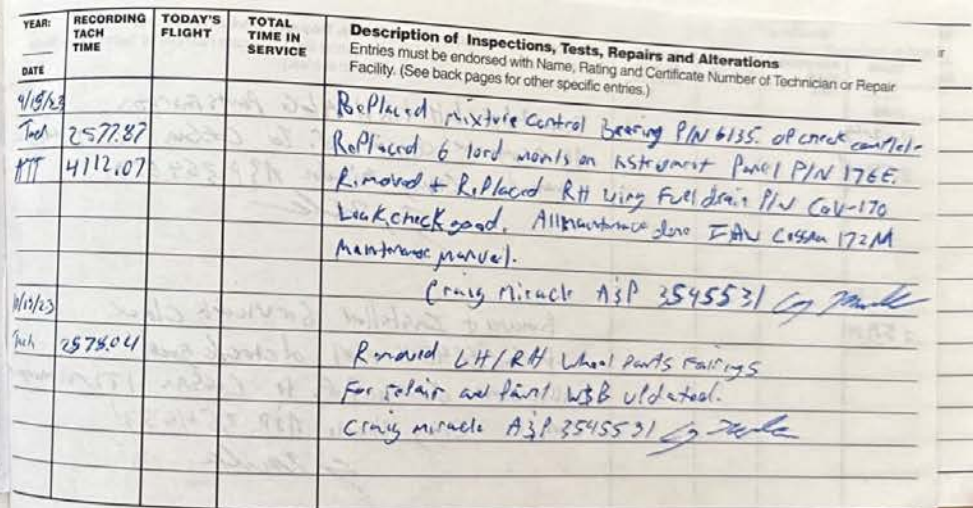 YEAR:
RECORDING TACH TIME
TODAY'S FLIGHT
TOTAL TIME IN SERVICE
Description of Inspections, Tests, Repairs and Alterations
Entries must be endorsed with Name, Rating and Certificate Number of Technician or Repair
Facility. (See back pages for other specific entries.)
DATE
Replaced mixture Control Bearing P/N 6135. op check complete
Tach 2577.87 Replaced 6 lord mounts on instrument Panel P/N 176E.
ATT 4112.07 Removed + Replaced RH wing Fuel drain P/N CaV-170
Leak check good. All maintenance done IAW Cessna 172M
Maintenance manual.
Craig Miracle A&P 3545531
Tach 2578.04 Removed LH/RH Wheel Pants Fairings
For repair and Paint W&B updated.
Craig Miracle A&P 3545531